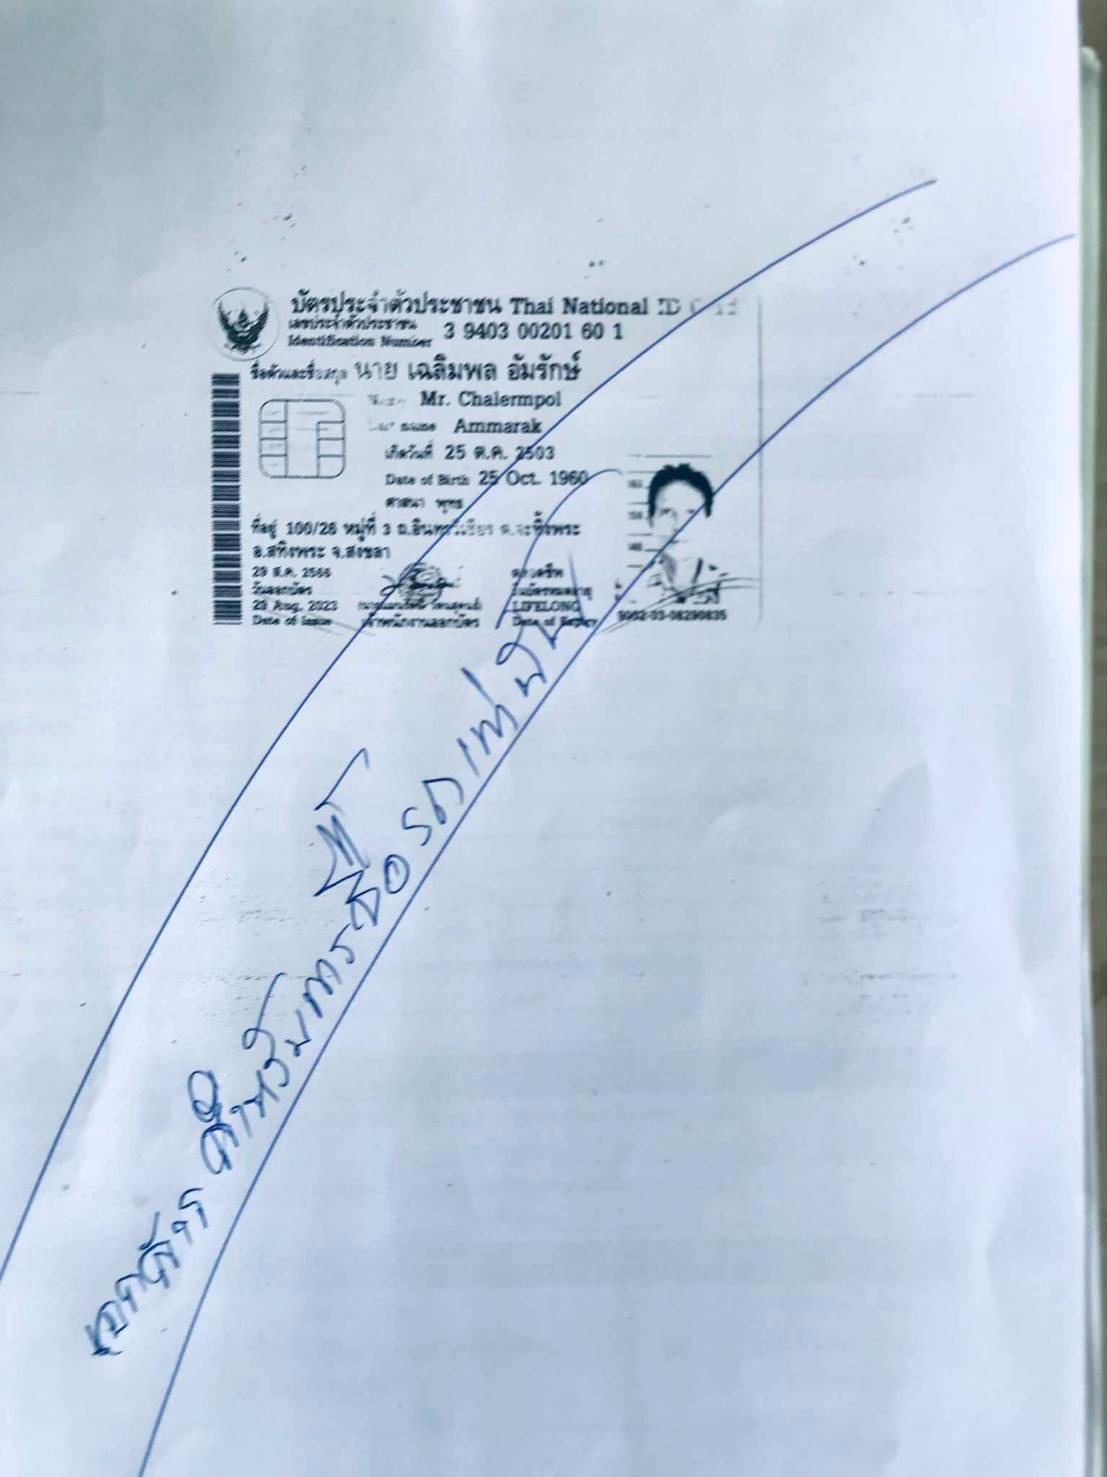 บัตรประจำตัวประชาชน Thai National ID
เลขประจำตัวประชาชน
Identification Number 3 9403 00201 60 1
ชื่อตัวและชื่อสกุล นาย เฉลิมพล อัมรักษ์
Name Mr. Chalermpol
Last name Ammarak
เกิดวันที่ 25 ต.ค. 2503
Date of Birth 25 Oct. 1960
ศาสนา พุทธ
ที่อยู่ 100/28 หมู่ที่ 3 ถ.อินทรวิเชียร ต.จะทิ้งพระ
อ.สทิงพระ จ.สงขลา
29 ส.ค. 2566
วันออกบัตร
29 Aug. 2023
Date of Issue
เจ้าพนักงานออกบัตร
ตลอดชีพ
วันบัตรหมดอายุ
LIFELONG
Date of Expiry
160
150
140
9002-03-08290835
เอกสาร สำหรับการซื้อรถเท่านั้น